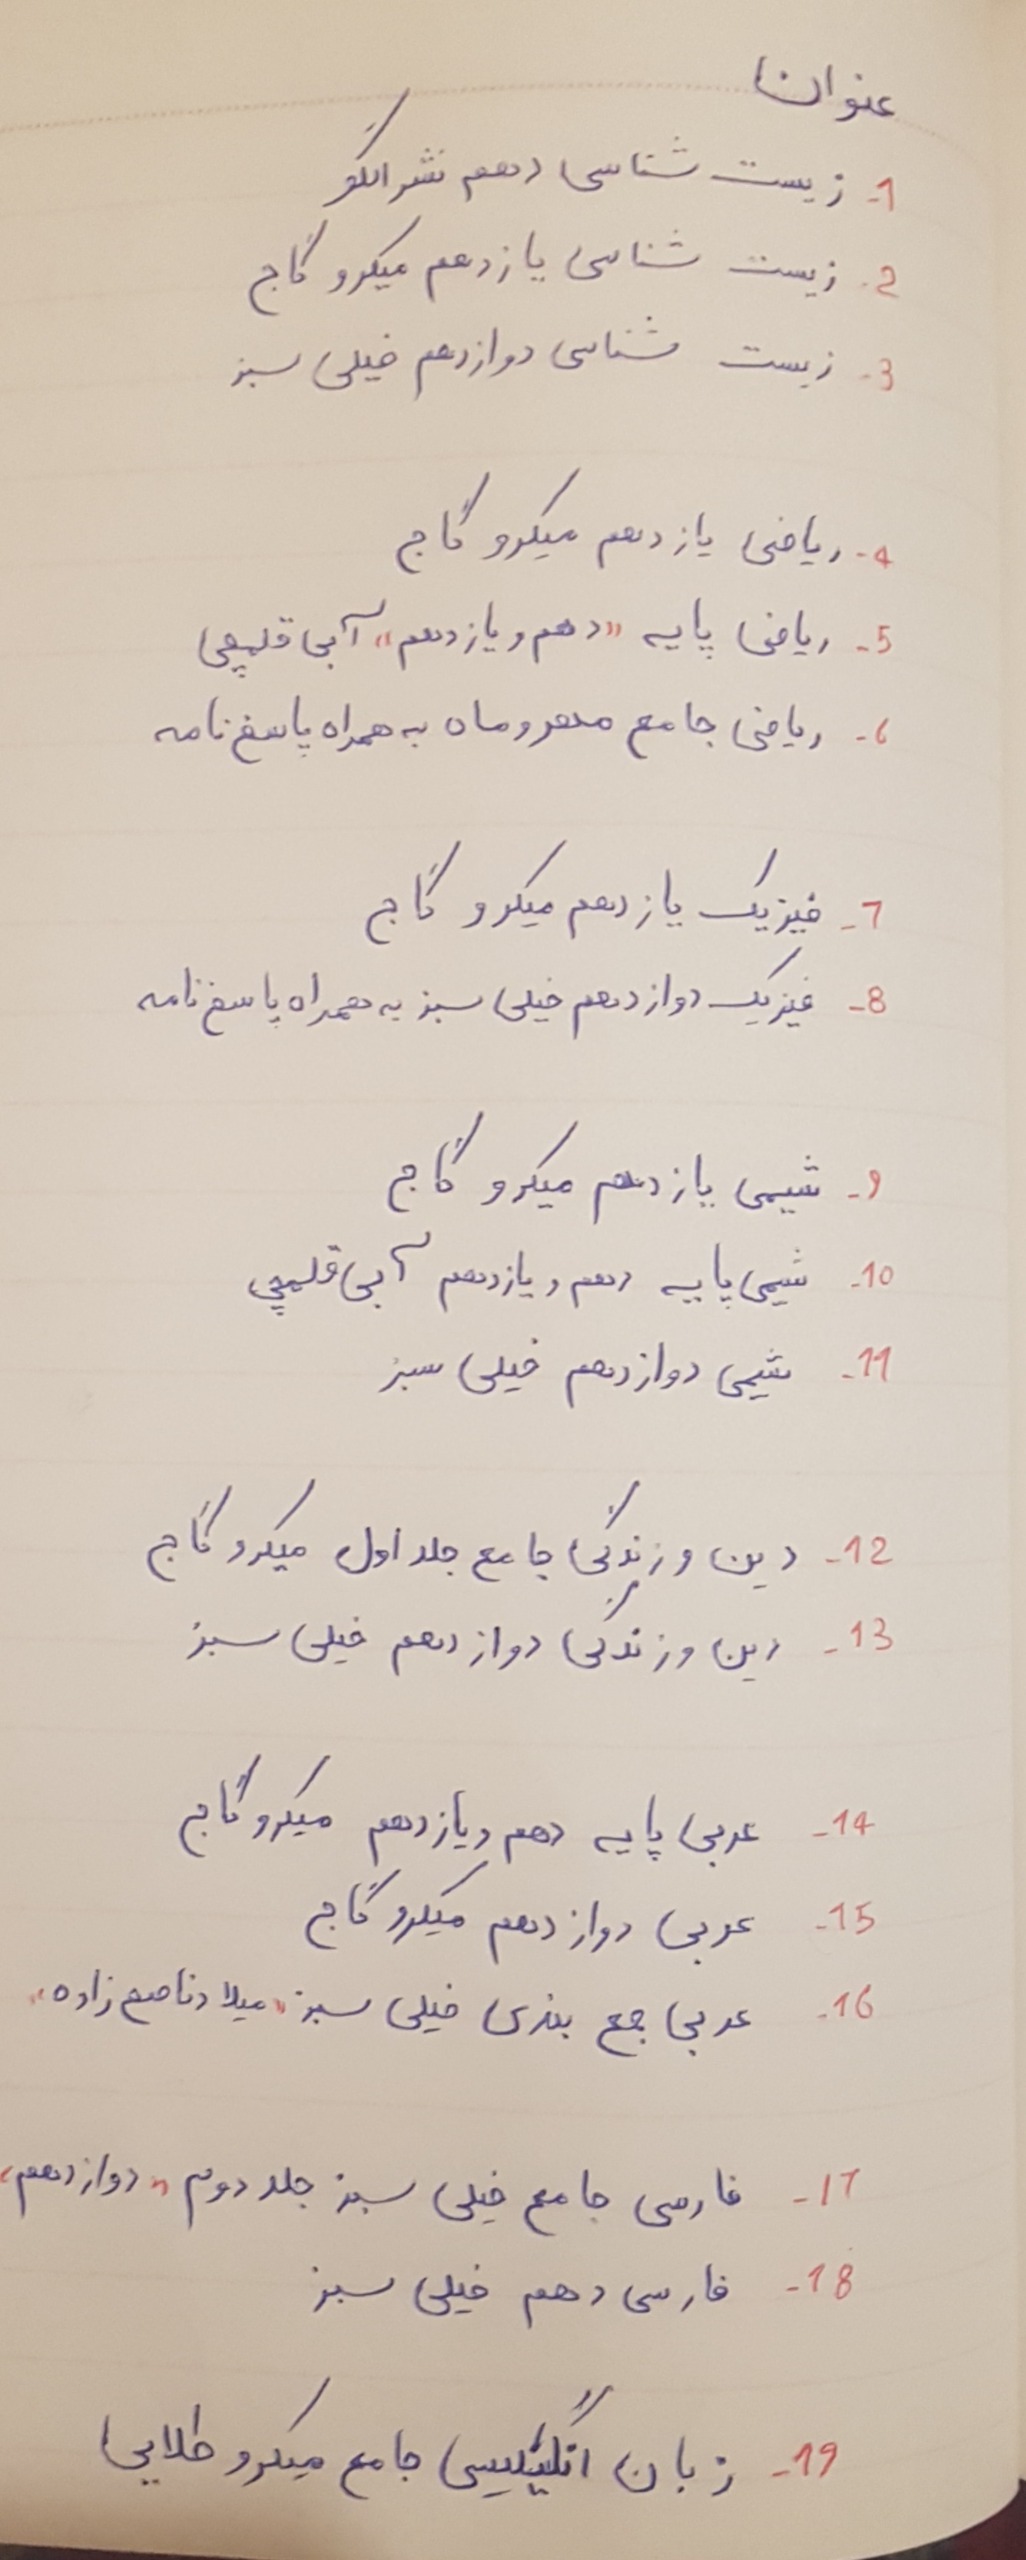 عنوان
1- زیست شناسی دهم نشر الگو
2- زیست شناسی یازدهم میکرو گاج
3- زیست شناسی دوازدهم خیلی سبز
4- ریاضی یازدهم میکرو گاج
5- ریاضی پایه «دهم و یازدهم» آبی قلمچی
6- ریاضی جامع مهروماه به همراه پاسخ نامه
7- فیزیک یازدهم میکرو گاج
8- فیزیک دوازدهم خیلی سبز به همراه پاسخ نامه
9- شیمی یازدهم میکرو گاج
10- شیمی پایه دهم و یازدهم آبی قلمچی
11- شیمی دوازدهم خیلی سبز
12- دین و زندگی جامع جلد اول میکرو گاج
13- دین و زندگی دوازدهم خیلی سبز
14- عربی پایه دهم و یازدهم میکرو گاج
15- عربی دوازدهم میکرو گاج
16- عربی جمع بندی خیلی سبز «میلاد ناصح زاده»
17- فارسی جامع خیلی سبز جلد دوم «دوازدهم»
18- فارسی دهم خیلی سبز
19- زبان انگلیسی جامع میکرو طلایی